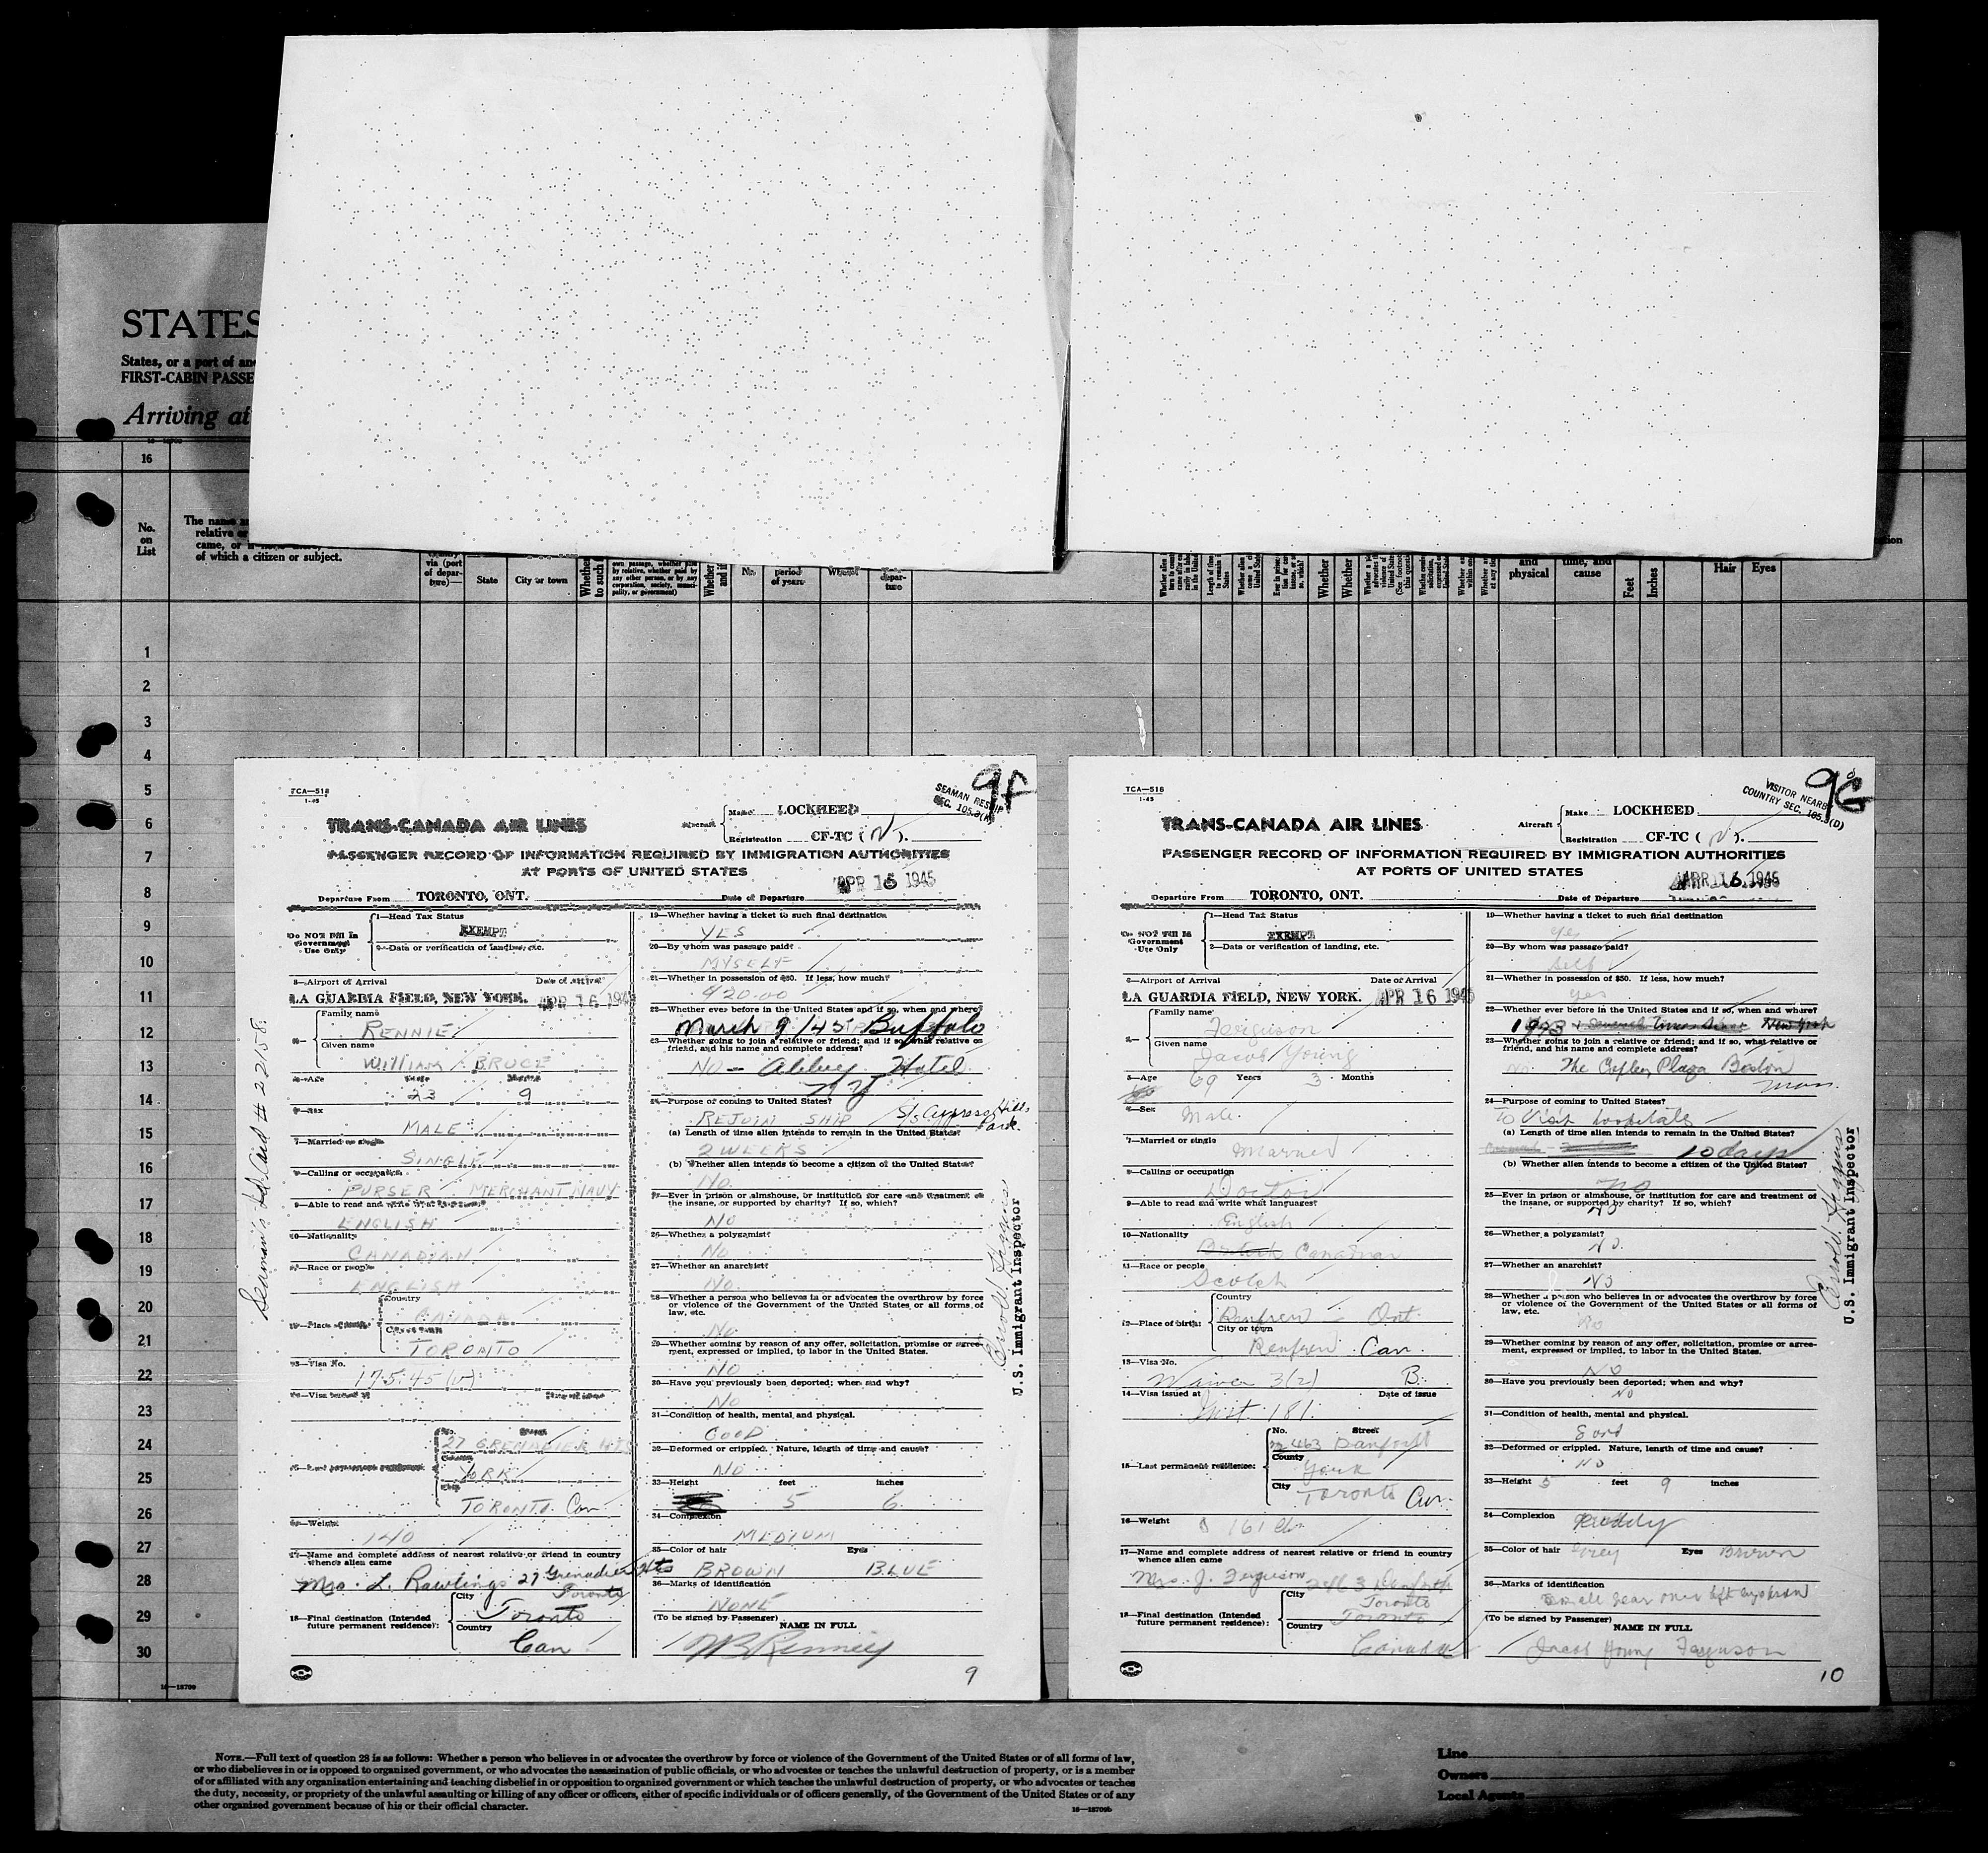 STATES
States, or a port of an
FIRST-CABIN PASSE
Arriving at
16
No. on List
The name
relative or
came, or
of which a citizen or subject.
via (port of depar-ture)
State
City or town
Whether
to such
own passage, whether paid
by relative, whether paid by
any other person, or by any
corporation, society, munici-
pality, or government)
No.
period of years
depar-ture
Whether
Whether
and physical
time, and cause
Feet
Inches
Hair
Eyes
1
2
3
4
5
6
7
8
9
10
11
12
13
14
15
16
17
18
19
20
21
22
23
24
25
26
27
28
29
30
16—18709
TCA—518
1-45
9F
SEAMAN RESHIP
SEC. 105.3(
TRANS-CANADA AIR LINES
Aircraft
Make LOCKHEED
Registration CF-TC (N).
PASSENGER RECORD OF INFORMATION REQUIRED BY IMMIGRATION AUTHORITIES
AT PORTS OF UNITED STATES
Departure From TORONTO, ONT. Date of Departure APR 16 1945
Do NOT fill in Government Use Only
1—Head Tax Status EXEMPT
2—Date or verification of landing, etc.
3—Airport of Arrival Date of Arrival
LA GUARDIA FIELD, NEW YORK. APR 16 1945
Family name
RENNIE
Given name
WILLIAM BRUCE
5—Age Years Months
23 9
6—Sex
MALE
7—Married or single
SINGLE
8—Calling or occupation
PURSER MERCHANT NAVY
9—Able to read and write what languages?
ENGLISH
10—Nationality
CANADIAN
11—Race or people
ENGLISH
12—Place of birth:
Country
CANADA
City or town
TORONTO
13—Visa No.
175.45 (v)
14—Visa issued at Date of issue
15—Last permanent residence:
No. Street
27 GRENADIER HTS
County
YORK
City
TORONTO Can
16—Weight
140
17—Name and complete address of nearest relative or friend in country
whence alien came
Mrs. L. Rawlings 27 Grenadier Hts
Toronto
18—Final destination (Intended
future permanent residence):
City
Toronto
Country
Can
19—Whether having a ticket to such final destination
YES
20—By whom was passage paid?
MYSELF
21—Whether in possession of $50. If less, how much?
$20.00
22—Whether ever before in the United States and if so, when and where?
March 9/45 Buffalo
23—Whether going to join a relative or friend; and if so, what relative or
friend, and his name and complete address?
NO - Abbey Hotel
N Y
24—Purpose of coming to United States?
REJOIN SHIP
St. Cypress Hills
Park.
(a) Length of time alien intends to remain in the United States?
2 WEEKS
(b) Whether alien intends to become a citizen of the United States?
No.
25—Ever in prison or almshouse, or institution for care and treatment of
the insane, or supported by charity? If so, which?
NO
26—Whether a polygamist?
No
27—Whether an anarchist?
No.
28—Whether a person who believes in or advocates the overthrow by force
or violence of the Government of the United States or all forms of
law, etc.
No
29—Whether coming by reason of any offer, solicitation, promise or agree-
ment, expressed or implied, to labor in the United States.
NO
30—Have you previously been deported; when and why?
NO
31—Condition of health, mental and physical.
GOOD
32—Deformed or crippled. Nature, length of time and cause?
NO
33—Height feet inches
5 6
34—Complexion
MEDIUM
35—Color of hair Eyes
BROWN BLUE
36—Marks of identification
NONE
(To be signed by Passenger)
NAME IN FULL
9
Seaman's Id. Card # 22158
U.S. Immigrant Inspector
TCA—518
1-45
9G
VISITOR NEARBY
COUNTRY SEC. 105.3(D)
TRANS-CANADA AIR LINES
Aircraft
Make LOCKHEED
Registration CF-TC (N).
PASSENGER RECORD OF INFORMATION REQUIRED BY IMMIGRATION AUTHORITIES
AT PORTS OF UNITED STATES
Departure From TORONTO, ONT. Date of Departure APR 16 1945
Do NOT fill in Government Use Only
1—Head Tax Status EXEMPT
2—Date or verification of landing, etc.
3—Airport of Arrival Date of Arrival
LA GUARDIA FIELD, NEW YORK. APR 16 1945
Family name
Ferguson
Given name
Jacob Young
5—Age 69 Years 3 Months
6—Sex
Male.
7—Married or single
Married
8—Calling or occupation
Doctor
9—Able to read and write what languages?
English
10—Nationality
British Canadian
11—Race or people
Scotch
12—Place of birth:
Country
Renfrew Ont.
City or town
Renfrew Can.
13—Visa No.
Waiver 3(2) B.
14—Visa issued at Date of issue
Inst 181
15—Last permanent residence:
No. Street
2463 Danforth
County
York
City
Toronto Can.
16—Weight
161 lb.
17—Name and complete address of nearest relative or friend in country
whence alien came
Mrs. J. Ferguson 2463 Danforth
Toronto
18—Final destination (Intended
future permanent residence):
City
Toronto
Country
Canada
19—Whether having a ticket to such final destination
Yes
20—By whom was passage paid?
Self
21—Whether in possession of $50. If less, how much?
Yes
22—Whether ever before in the United States and if so, when and where?
New York
23—Whether going to join a relative or friend; and if so, what relative or
friend, and his name and complete address?
No. The Copley Plaza Boston
Mass.
24—Purpose of coming to United States?
To Visit hospitals
(a) Length of time alien intends to remain in the United States?
10 days
(b) Whether alien intends to become a citizen of the United States?
no
25—Ever in prison or almshouse, or institution for care and treatment of
the insane, or supported by charity? If so, which?
No
26—Whether a polygamist?
No.
27—Whether an anarchist?
No
28—Whether a person who believes in or advocates the overthrow by force
or violence of the Government of the United States or all forms of
law, etc.
No
29—Whether coming by reason of any offer, solicitation, promise or agree-
ment, expressed or implied, to labor in the United States.
NO
30—Have you previously been deported; when and why?
No
31—Condition of health, mental and physical.
Good
32—Deformed or crippled. Nature, length of time and cause?
No
33—Height 5 feet 9 inches
34—Complexion Ruddy
35—Color of hair Grey Eyes Brown
36—Marks of identification
Small scar over left eyebrow
(To be signed by Passenger)
NAME IN FULL
Jacob Young Ferguson
10
U.S. Immigrant Inspector
16—18709
NOTE.—Full text of question 28 is as follows: Whether a person who believes in or advocates the overthrow by force or violence of the Government of the United States or of all forms of law,
or who disbelieves in or is opposed to organized government, or who advocates the assassination of public officials, or who advocates or teaches the unlawful destruction of property, or is a member
of or affiliated with any organization entertaining and teaching disbelief in or opposition to organized government or which teaches the unlawful destruction of property, or who advocates or teaches
the duty, necessity, or propriety of the unlawful assaulting or killing of any officer or officers, either of specific individuals or of officers generally, of the Government of the United States or of any
other organized government because of his or their official character.
16—18709b
Line
Owners
Local Agents